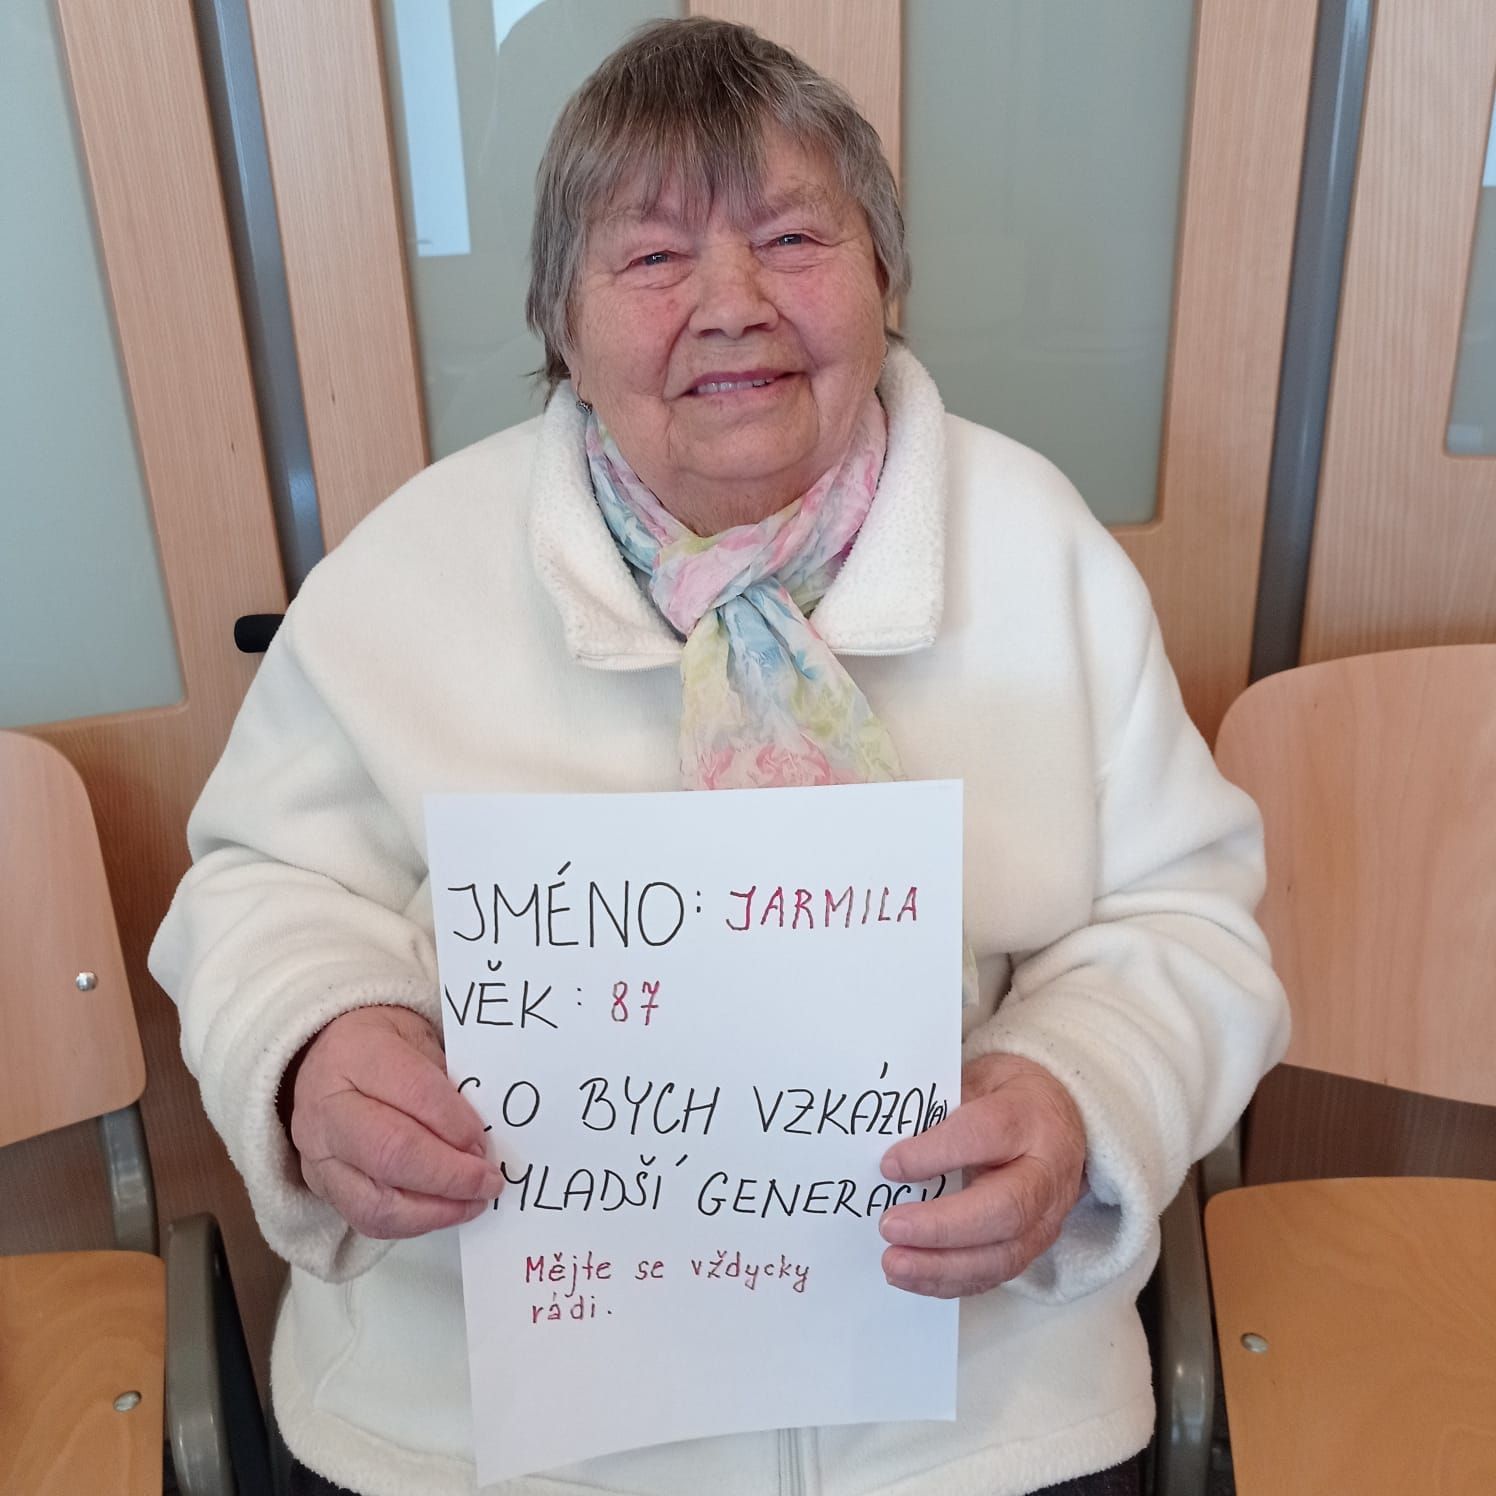 JMÉNO: JARMILA
VĚK: 87
CO BYCH VZKÁZAL(A)
MLADŠÍ GENERACI
Mějte se vždycky
rádi.